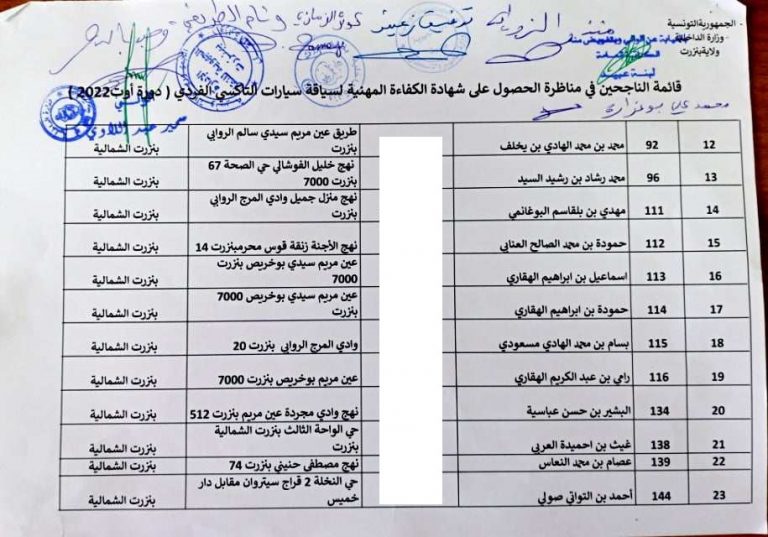 الجمهورية التونسية
وزارة الداخلية
ولاية بنزرت
قائمة الناجحين في مناظرة الحصول على شهادة الكفاءة المهنية لسياقة سيارات التاكسي الفردي ( دورة أوت2022 )
12 92 محمد بن محمد الهادي بن يخلف طريق عين مريم سيدي سالم الروابي بنزرت بنزرت الشمالية
13 96 محمد رشاد بن رشيد السيد نهج خليل الفوشالي حي الصحة 67 بنزرت 7000 بنزرت الشمالية
14 111 مهدي بن بلقاسم البوغانمي نهج منزل جميل وادي المرج الروابي بنزرت بنزرت الشمالية
15 112 حمودة بن محمد الصالح العنابي نهج الأجنة زنقة قوس محرمبنزرت 14 بنزرت الشمالية
16 113 اسماعيل بن ابراهيم الهقاري عين مريم سيدي بوخريص بنزرت 7000 بنزرت الشمالية
17 114 حمودة بن ابراهيم الهقاري عين مريم سيدي بوخريص 7000 بنزرت بنزرت الشمالية
18 115 بسام بن محمد الهادي مسعودي وادي المرج الروابي بنزرت 20 بنزرت الشمالية
19 116 رامي بن عبد الكريم الهقاري عين مريم بوخريص بنزرت 7000 بنزرت الشمالية
20 134 البشير بن حسن عباسية نهج وادي مجردة عين مريم بنزرت 512 بنزرت الشمالية
21 138 غيث بن احميدة العربي حي الواحة الثالث بنزرت الشمالية بنزرت الشمالية
22 139 عصام بن محمد النعاس نهج مصطفى حنيني بنزرت 74 بنزرت الشمالية
23 144 أحمد بن التواتي صولي حي النخلة 2 قراج سيتروان مقابل دار خميس بنزرت الشمالية